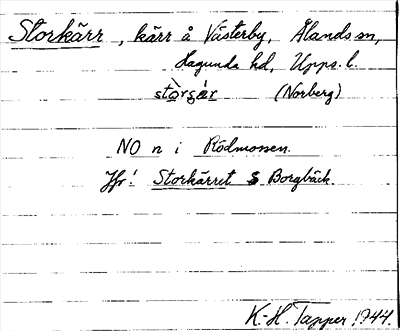 Storkärr, kärr å Västerby, Ålands sn,
Hagunda hd, Upps. l.
(Norberg)
NO n i Rödmossen.
Jfr! Storkärret S Borgbäck.
K.-H. Tapper 1944.